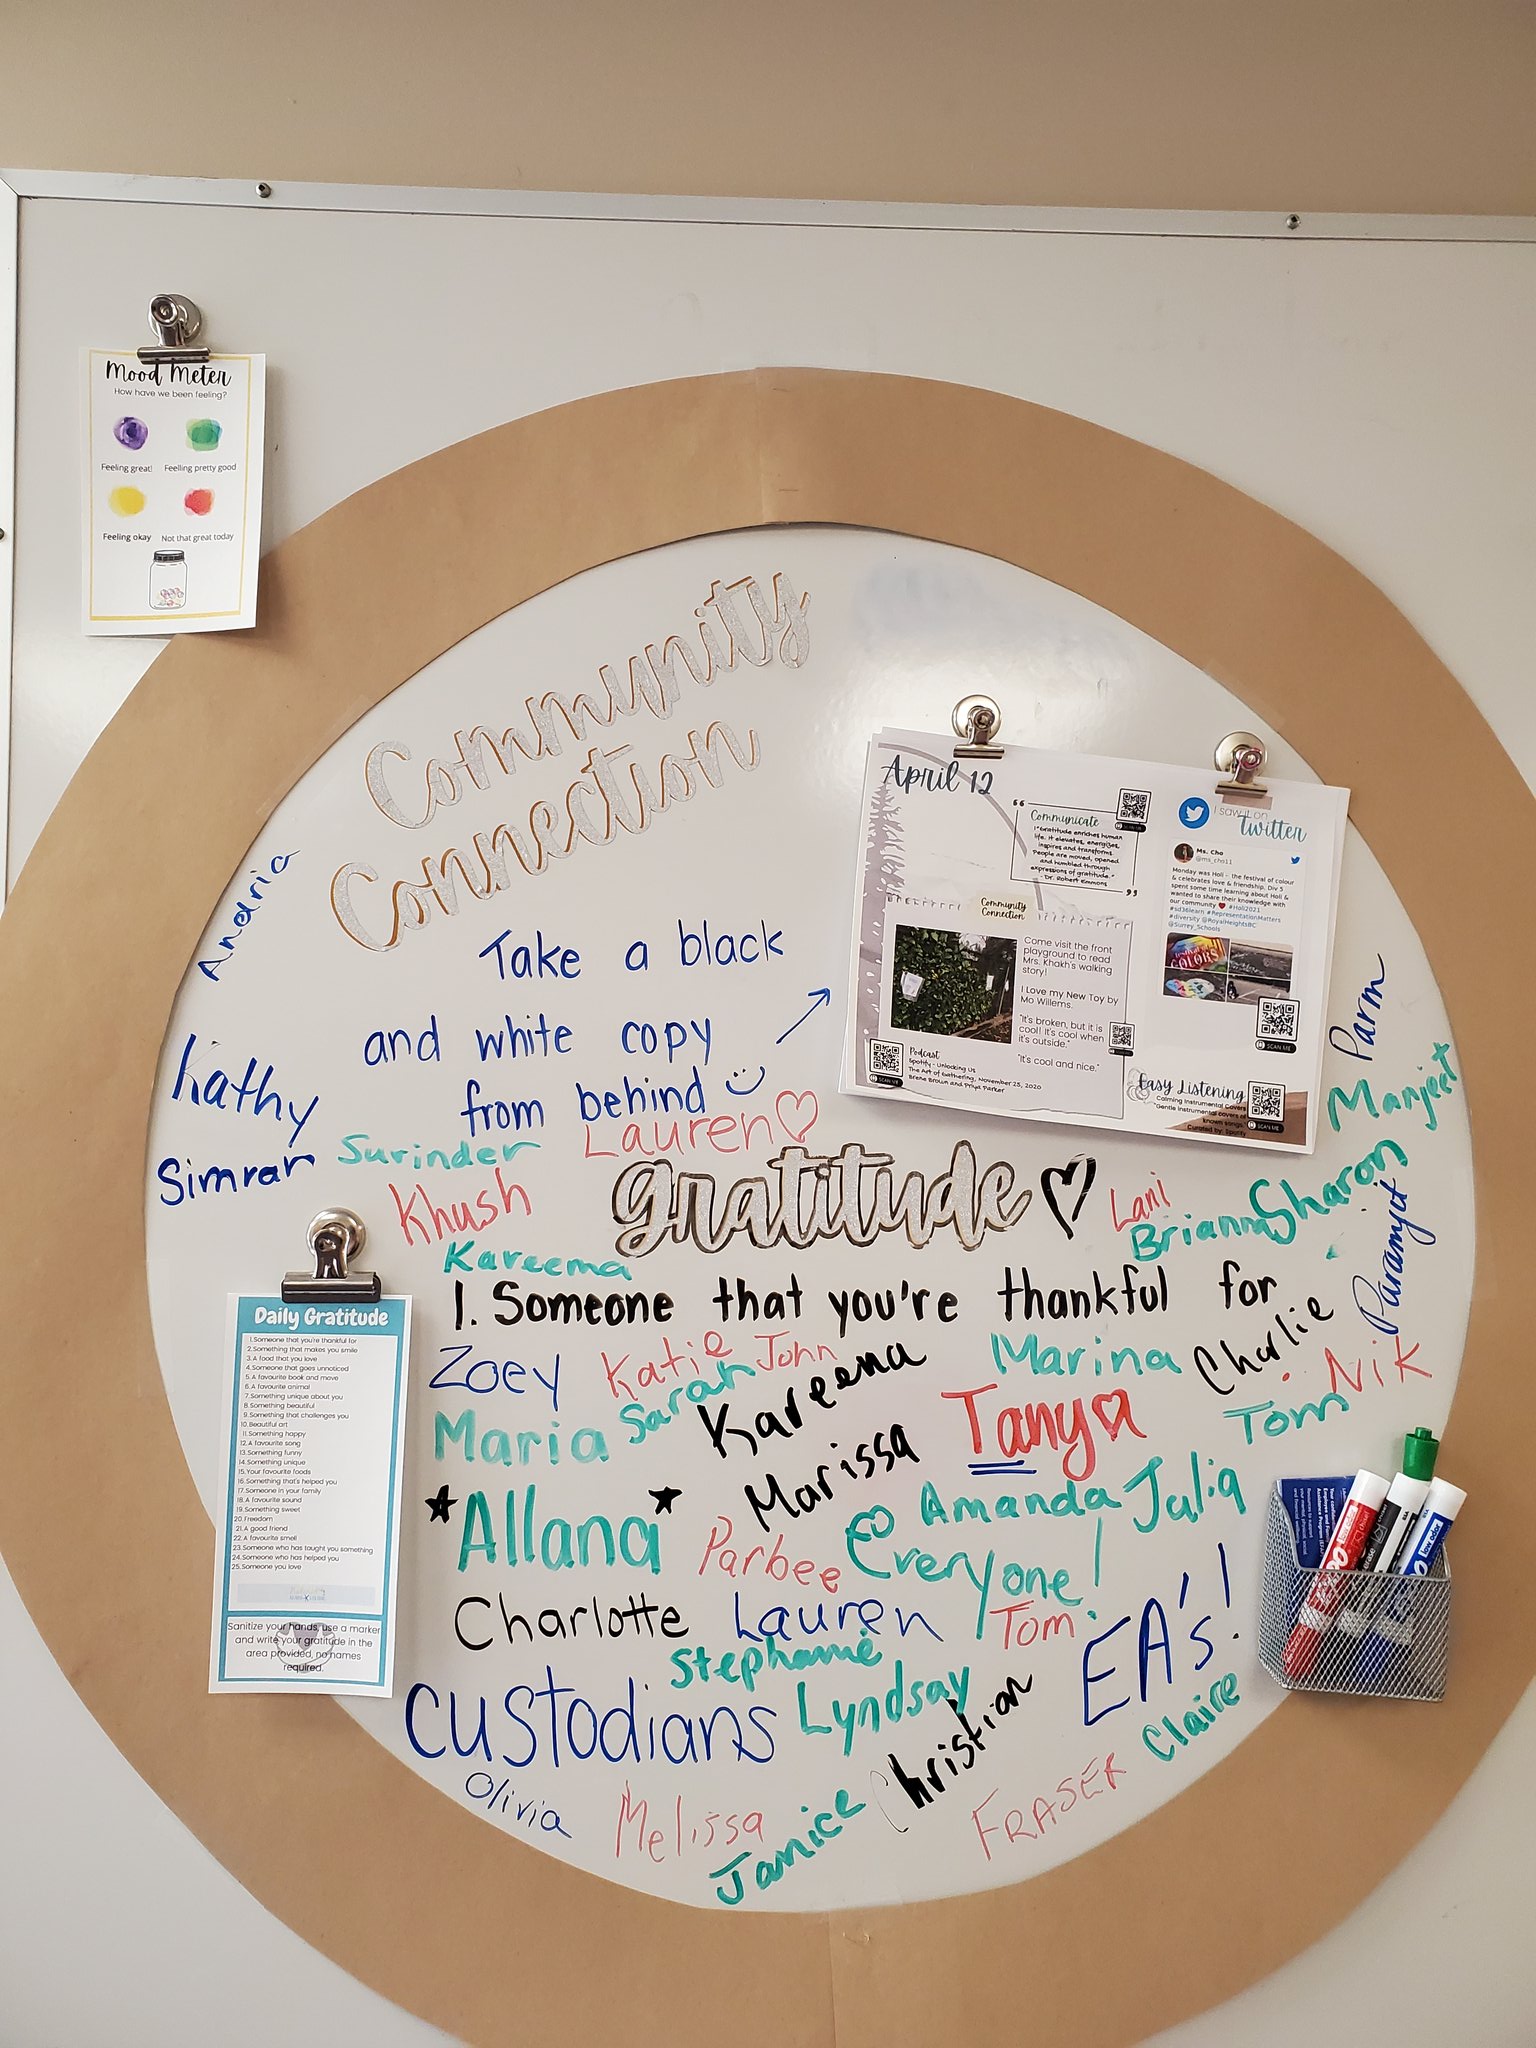 Mood Meter
How have we been feeling?
Feeling great!
Feelling pretty good
Feeling okay
Not that great today
Community
Connection
Take a black
and white copy
from behind
April 12
Communicate
"Gratitude enriches human
life. It elevates, energizes,
inspires and transforms.
People are moved, opened
and humbled through
expressions of gratitude."
- Dr. Robert Emmons
Community
Connection
Come visit the front
playground to read
Mrs. Khakh's walking
story!
I Love my New Toy by
Mo Willems.
"It's broken, but it is
cool! It's cool when
it's outside."
"It's cool and nice."
Podcast
Spotify - Unlocking Us
The Art of Gathering, November 25, 2020
Brene Brown and Priya Parker
SCAN ME
I saw it on
Twitter
Ms. Cho
@ms_cho11
Monday was Holi - the festival of colour
& celebrates love & friendship. Div 5
spent some time learning about Holi &
wanted to share their knowledge with
our community ❤ #Holi2021
#sd36learn #RepresentationMatters
#diversity @RoyalHeightsBC
@Surrey_Schools
COLORS
SCAN ME
Easy Listening
Calming Instrumental Covers
"Gentle instrumental covers of
known songs."
Curated by: Spotify
SCAN ME
Andria
Kathy
Simran
Surinder
Lauren
Khush
Kareema
gratitude
Lani
Brianna
Sharon
Parm
Manjeet
Paramjit
1. Someone that you're thankful for
Zoey
Katie
John
Sarah
Kareena
Marina
Charlie
Nik
Maria
Marissa
Tanya
Tom
*Allana*
Parbee
Amanda
Julia
Everyone!
Charlotte
Lauren
Tom
EA's!
Stephanie
custodians
Lyndsay
Christian
Claire
Olivia
Melissa
Janice
FRASER
Daily Gratitude
1.Someone that you're thankful for
2.Something that makes you smile
3.A food that you love
4.Someone that goes unnoticed
5.A favourite book and move
6.A favourite animal
7.Something unique about you
8.Something beautiful
9.Something that challenges you
10.Beautiful art
11.Something happy
12.A favourite song
13.Something funny
14.Something unique
15.Your favourite foods
16.Something that's helped you
17.Someone in your family
18.A favourite sound
19.Something sweet
20.Freedom
21.A good friend
22.A favourite smell
23.Someone who has taught you something
24.Someone who has helped you
25.Someone you love
Sanitize your hands, use a marker
and write your gratitude in the
area provided, no names
required.
low odor